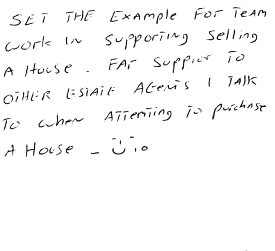 SET THE Example FOR TEAM
WORK IN SUPPORTING SELLING
A HOUSE. FAR SUPPIOR TO
OTHER ESTATE AGENTS I TALK
TO WHEN ATTEMTING TO PURCHASE
A HOUSE -